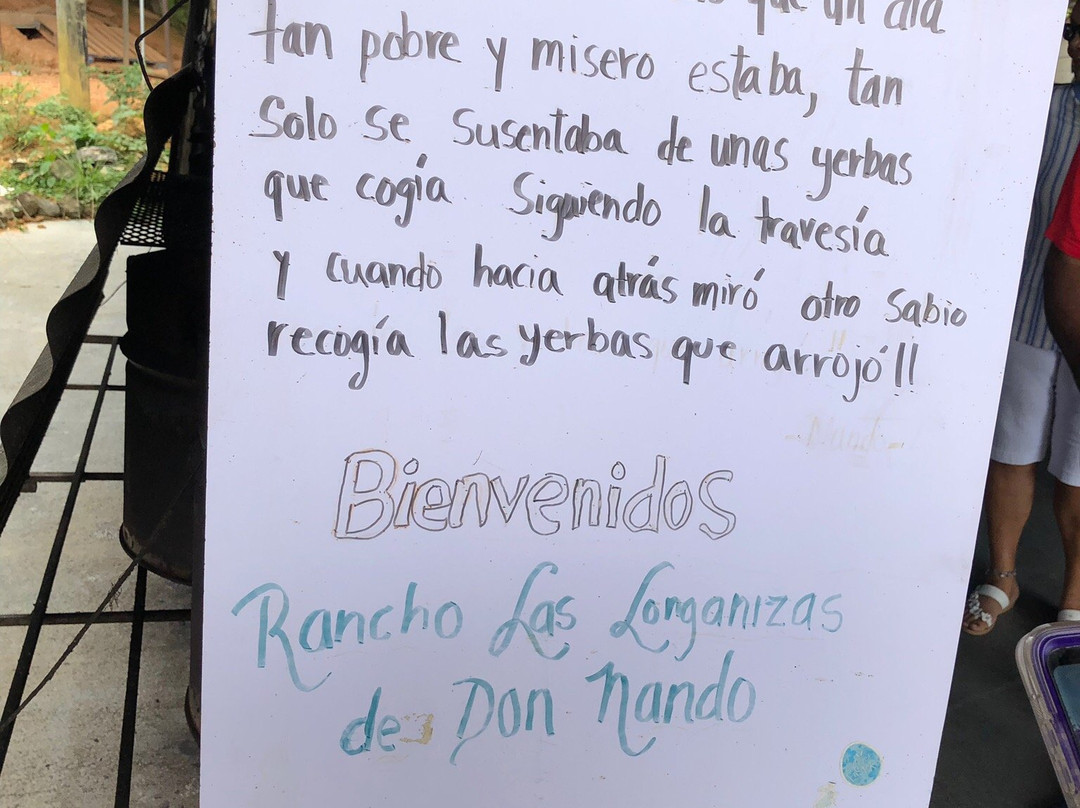 que un día
tan pobre y misero estaba, tan
Solo se susentaba de unas yerbas
que cogía Siguiendo la travesía
y cuando hacia atrás miró otro sabio
recogía las yerbas que arrojó!!
Bienvenidos
Rancho Las Longanizas
de Don Nando